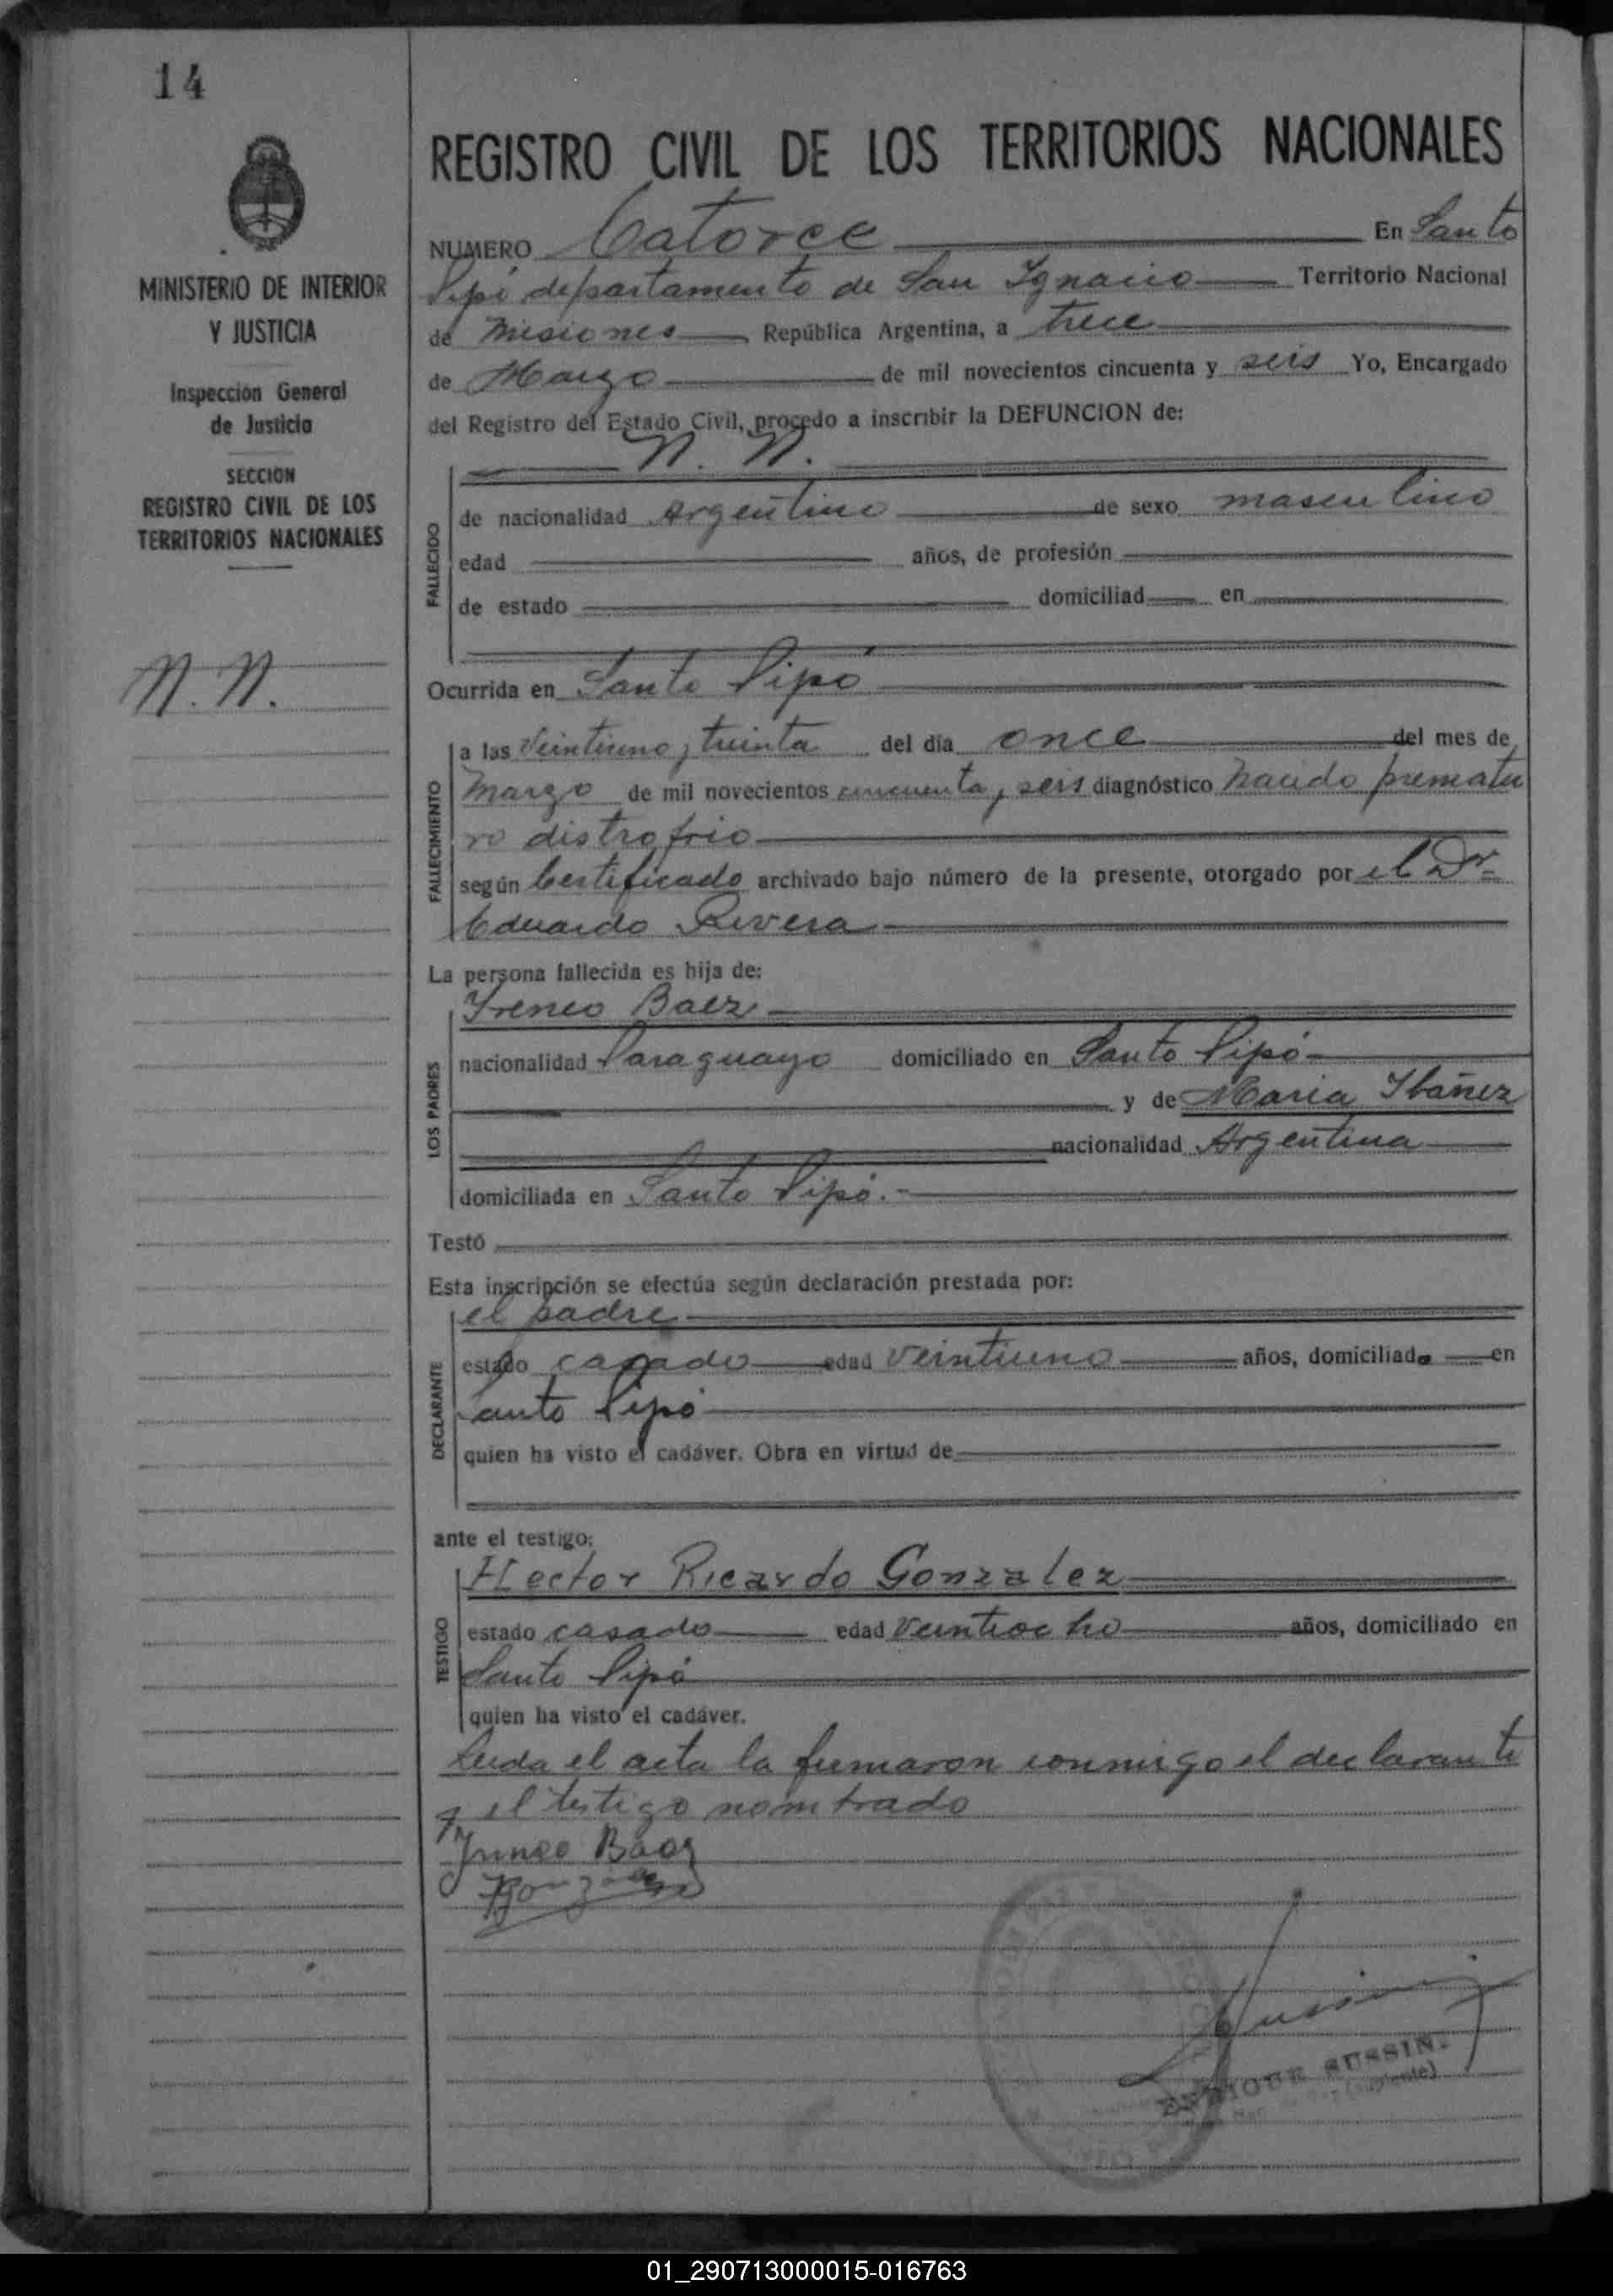 14
REGISTRO CIVIL DE LOS TERRITORIOS NACIONALES
MINISTERIO DE INTERIOR
Y JUSTICIA
Inspección General
de Justicia
SECCION
REGISTRO CIVIL DE LOS
TERRITORIOS NACIONALES
N. N.
NUMERO Catorce En Santo
Pipó departamento de San Ignacio Territorio Nacional
de Misiones República Argentina, a trece
de Marzo de mil novecientos cincuenta y seis Yo, Encargado
del Registro del Estado Civil, procedo a inscribir la DEFUNCION de:
N. N.
FALLECIDO
de nacionalidad Argentino de sexo masculino
edad años, de profesión
de estado domiciliad en
Ocurrida en Santo Pipó
FALLECIMIENTO
a las Veintiuno y treinta del día once del mes de
Marzo de mil novecientos cincuenta y seis diagnóstico Nacido prematu
ro distrofrio
según Certificado archivado bajo número de la presente, otorgado por el Dr
Eduardo Rivera
La persona fallecida es hija de:
LOS PADRES
Ireneo Baez
nacionalidad Paraguayo domiciliado en Santo Pipó
y de Maria Ibáñez
nacionalidad Argentina
domiciliada en Santo Pipó.-
Testó
Esta inscripción se efectúa según declaración prestada por:
DECLARANTE
el padre
estado casado edad veintiuno años, domiciliado en
Santo Pipó
quien ha visto el cadáver. Obra en virtud de
ante el testigo:
TESTIGO
Hector Ricardo Gonzalez
estado casado edad Veintiocho años, domiciliado en
Santo Pipó
quien ha visto el cadáver.
Leida el acta la firmaron conmigo el declarante
y el testigo nombrado
Ireneo Baez
ENRIQUE SUSSIN
(suplente)
01_290713000015-016763